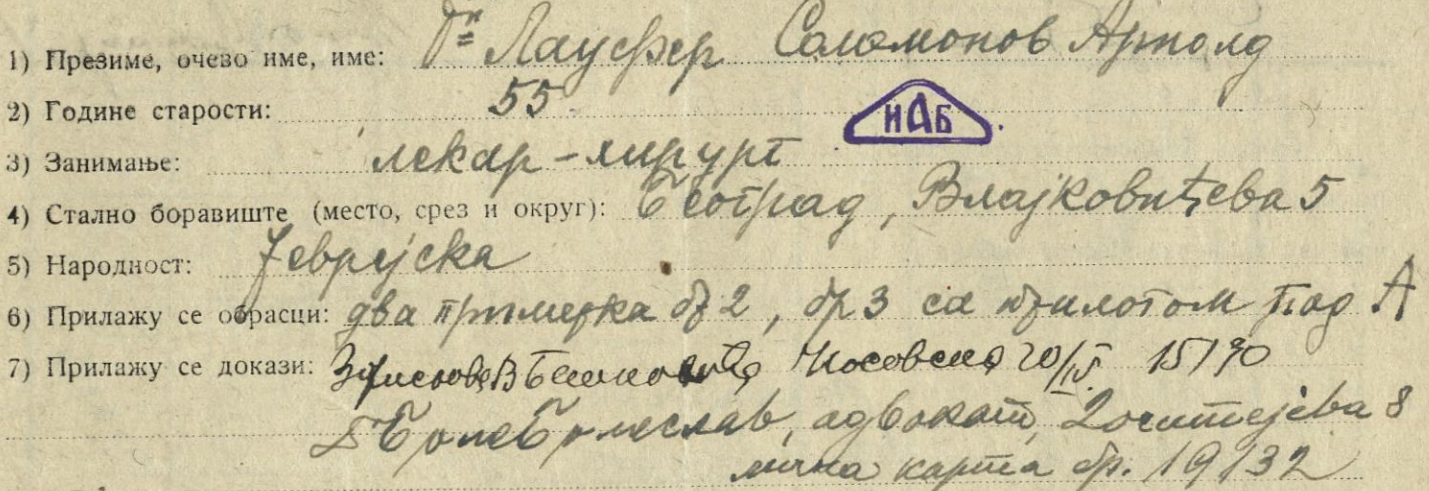 1) Презиме, очево име, име: Др Лауфер Соломонов Арнолд
2) Године старости: 55
ИАБ
3) Занимање: лекар-хирург
4) Стално боравиште (место, срез и округ): Београд, Влајковићева 5
5) Народност: Јеврејска
6) Прилажу се обрасци: два примерка бр 2, бр 3 са прилогом под А
7) Прилажу се докази: Косовска 20/IV 15190
адвокат, Доситејева 8
лична карта бр. 19132